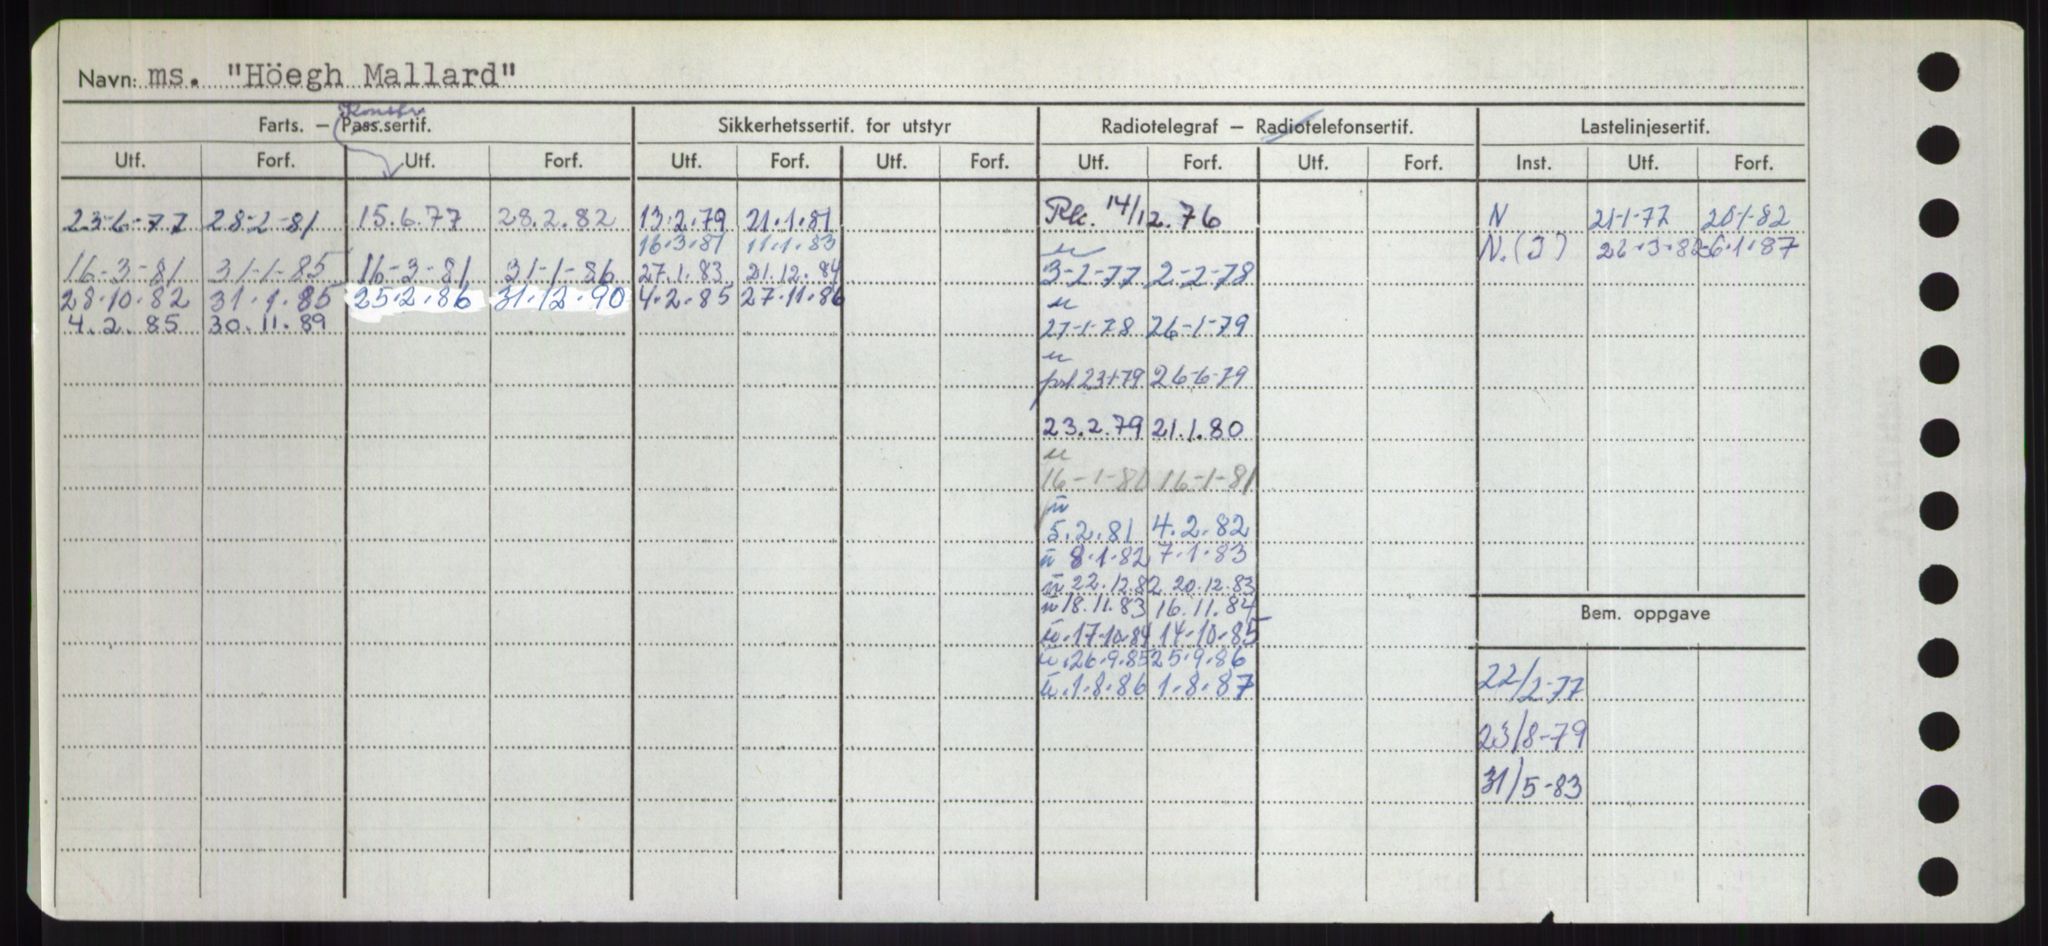 Navn: ms. "Höegh Mallard"
Konstr
Farts. — Pass.sertif. Sikkerhetssertif. for utstyr Radiotelegraf — Radiotelefonsertif. Lastelinjesertif.
Utf. Forf. Utf. Forf. Utf. Forf. Utf. Forf. Utf. Forf. Utf. Forf. Inst. Utf. Forf.
23-6-77 28-2-81 15.6.77 28.2.82 13.2.79 21.1.81 14/12.76 N 21-1-77 20-1-82
16.3.81 11.1.83 N. (I) 6.1.87
16-3-81 31-1-85 16-3-81 31-1-86 27.1.83 21.12.84 3-2-77 2-2-78
28.10.82 31.1.85 25.2.86 31.12.90 4.2.85 27.11.86
4.2.85 30.11.89 27-1-78 26-1-79
26-6-79
23.2.79 21.1.80
16-1-80 16-1-81
5.2.81 4.2.82
8.1.82 7.1.83
22.12.82 20.12.83
18.11.83 16.11.84
Bem. oppgave
17.10.84 14.10.85
26.9.85 25.9.86
1.8.86 1.8.87
22/2-77
23/8-79
31/5-83